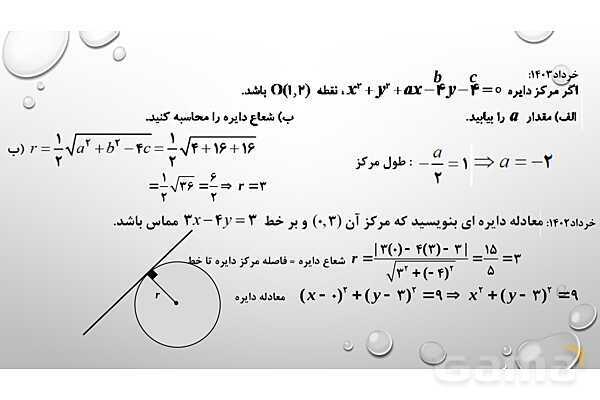 خرداد۱۴۰۳:
b c
اگر مرکز دایره x² + y² + ax − ۴y − ۴ = ۰ ، نقطه O(۱,۲) باشد.
الف) مقدار a را بیابید. ب) شعاع دایره را محاسبه کنید.
طول مرکز : −a/۲ = ۱ ⇒ a = −۲
ب) r = ۱/۲ √(a² + b² − ۴c) = ۱/۲ √(۴+۱۶+۱۶)
= ۱/۲ √۳۶ = ۶/۲ ⇒ r = ۳
خرداد۱۴۰۲: معادله دایره ای بنویسید که مرکز آن (۰,۳) و بر خط ۳x − ۴y = ۳ مماس باشد.
شعاع دایره = فاصله مرکز دایره تا خط r = |۳(۰) − ۴(۳) − ۳| / √(۳² + (−۴)²) = ۱۵/۵ = ۳
معادله دایره (x − ۰)² + (y − ۳)² = ۹ ⇒ x² + (y − ۳)² = ۹
r
Gama